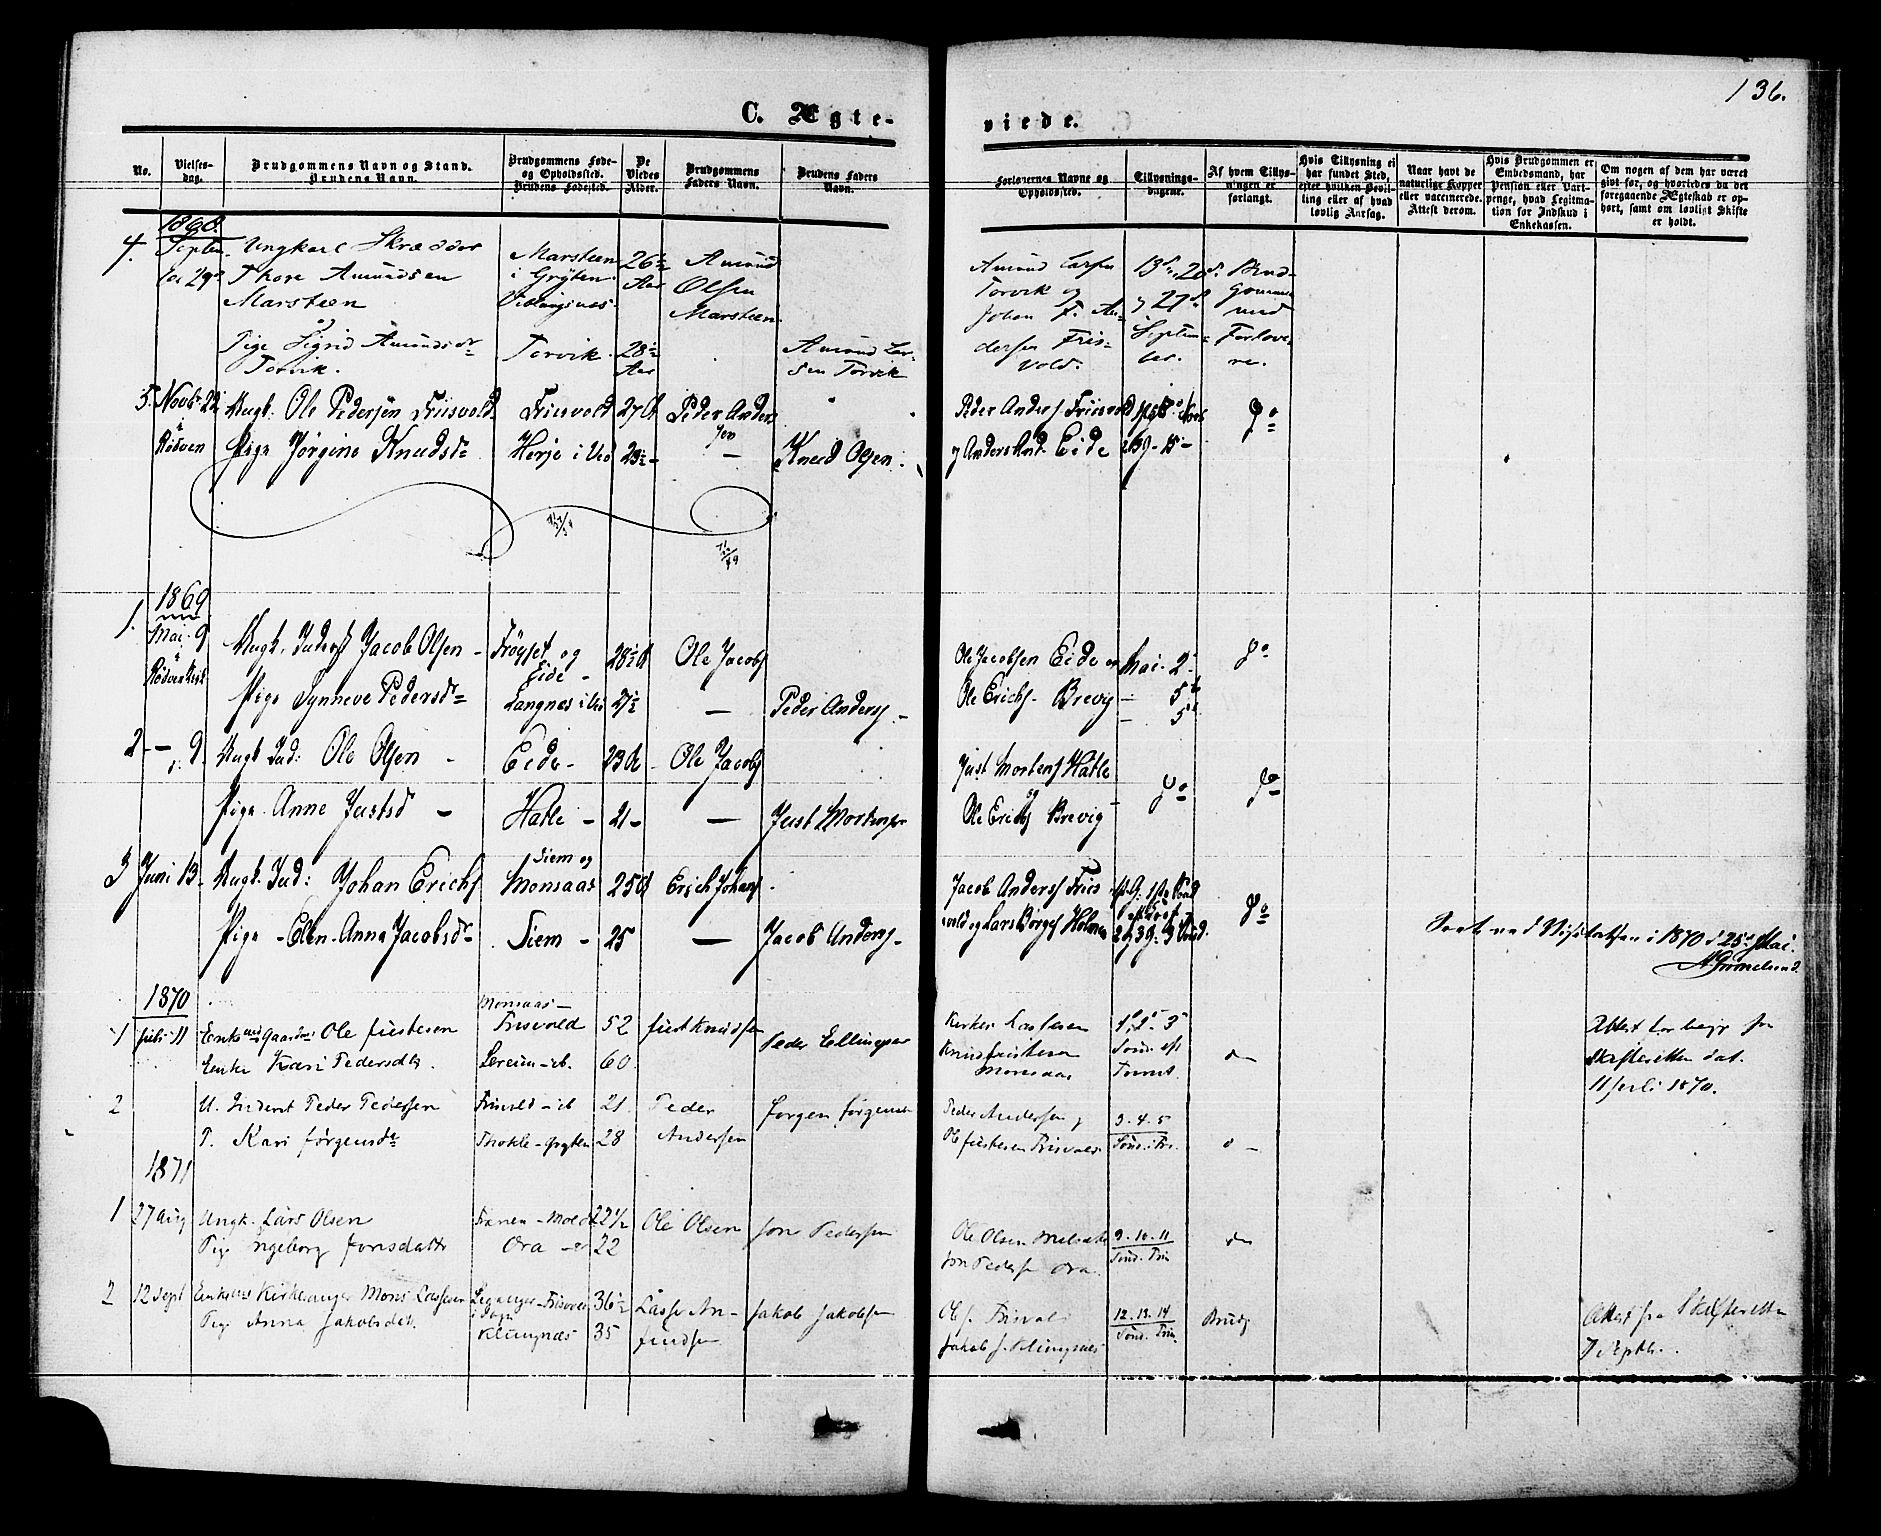 136.
C. Ægte-
viede.
No.
Vielses-
dag.
Brudgommens Navn og Stand.
Brudens Navn.
Brudgommens Føde-
og Opholdssted.
Brudens Fødested.
De
Viedes
Alder.
Brudgommens
Faders Navn.
Brudens Faders
Navn.
Forlovernes Navne og
Opholdssted.
Tillysnings-
dagene.
Af hvem Tillys-
ningen er
forlangt.
Hvis Tillysning ei
har fundet Sted,
efter hvilken Bevil-
ling eller af hvad
lovlig Aarsag.
Naar havt de
naturlige Kopper
eller vaccinerede.
Attest derom.
Hvis Brudgommen er
Embedsmand, har
Pension eller Vart-
penge, hvad Legitima-
tion for Indskud i
Enkekassen.
Om nogen af dem har været
gift før, og hvorledes da det
foregaaende Ægteskab er op-
hørt, samt om lovligt Skifte
er holdt.
1868.
4. Septem-
ber 29de
Ungkarl Skrædder
Thore Amundsen
Marsteen
og
Pige Sigrid Amundsdr
Torvik.
Marsteen
i Grytten
Torvik.
26½
Aar
28½
Aar
Amund
Olsen
Marsteen
Amund Lar-
sen Torvik
Amund Larsen
Torvik og
Johan F. An-
dersen Friis-
vold.
13de, 20de
og 27de
Septem-
ber.
Brud-
gommen
med
Forlove-
re.
5. Novbr 22
Rödven
Ungk. Ole Pedersen Friisvold
Pige Jörgine Knudsdr
Friisvold
Herje i Ved
27 A
23½ -
Peder Anders
sen
—
Knud Olsen.
Peder Anders Friisvold
og Anders And. Eide
Do
1869
1. Mai 9
Rödven Kirk
Ungk. Inderst Jacob Olsen -
Pige Synneve Pedersdr
Fröyset og
Eide -
Langnes i Ved
28½ A
27½
Ole Jacobs
—
Peder Anders. -
Ole Jacobsen Eide og
Ole Erichs. Brevig
Mai 2
- 5te
- 5te
Do
2 - - 9.
Ungk Ind: Ole Olsen -
Pige Anne Justsd -
Eide -
Hatle -
23 A
21 -
Ole Jacobs
—
Just Mortensen
Just Mortens Hatle
og
Ole Erichs Brevig
Do
Do
3 Juni 13
Ungk. Ind: Johan Erichs
Pige - Elen Anna Jacobsdr
Siem og
Monsaas
Siem -
25 A
25
Erich Johans.
—
Jacob Anders. -
Jacob Anders Friis
vold og Lars Börges Holmen
Do
Seet ved Visitatsen i 1870 d 25de Mai.
A. Grimelund.
1870
1 Juli 11
Enkemd Gaardm: Ole Justesen
Enke Kari Pedersdtr.
Monsaas -
Frisvold
Lereim - ib.
52
60
Just Knudsen
Peder Ellingsen
Kirkes Lassesen
Knud Justesen
Monsaas
Sönd. eft
Trinit.
do
Attest for begge fra
Skifteretten dat.
11 Juli 1870.
2
U. Inderst Peder Pedersen
P. Kari Jørgensdr
Frisvold - ib
Thokle - Grytten
21.
28
Peder
Andersen
Jørgen Jørgensen
Peder Andersen og
Ole Justesen Frisvold
3. 4. 5
Sönd. Tr.
do -
1871
1 27 Aug
Ungk. Lars Olsen
Pige Ingeborg Jonsdatter
Franen - Molde
Ora -
22½
22
Ole Olsen
Jon Pedersen
Ole Olsen
Jon Pedersen Ora.
9. 10. 11
Sönd. Trin
do
2 12 Sept
Enkemd Kirkesanger Mons Lassesen
Pige Anna Jakobsdt.
Leganger - Frisvold
i Sogn
Klungnæs
36½
35
Lasse An-
findsen
Jakob Jakobsen
Ole J. Frisvold
Jakob J. Klungnæs
12. 13. 14
Sönd. Trin
Brudg
Attest fra Skifteretten
7 Septbr.